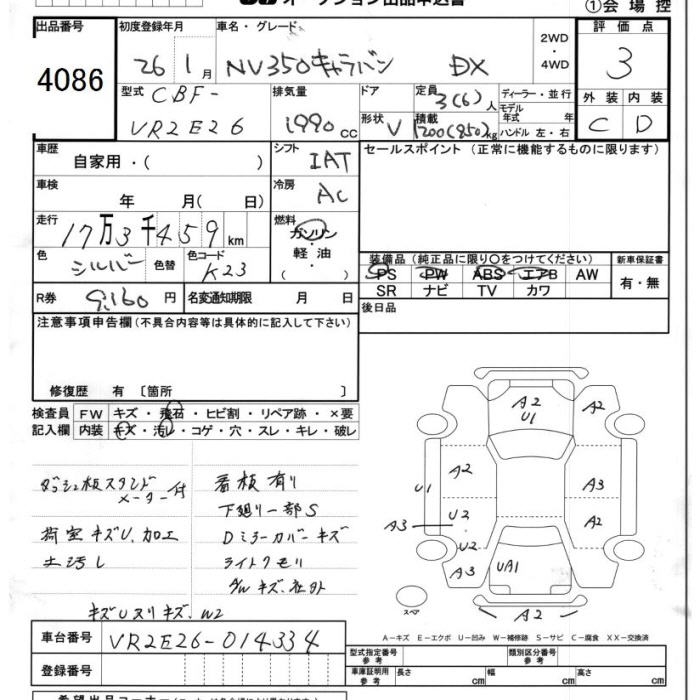 オークション出品申込書
①会場控
出品番号 4086
初度登録年月 26 1月
車名・グレード NV350キャラバン DX
2WD・4WD
評価点 3
外装 C 内装 D
型式 CBF-VR2E26
排気量 1990cc
ドア 形状 V
定員 3(6)人
積載 1200(850)kg
ディーラー・並行
モデル年式 年
ハンドル 左・右
車歴 自家用・( )
シフト IAT
セールスポイント(正常に機能するものに限ります)
車検 年 月( 日)
冷房 AC
走行 17万3千459km
燃料 ガソリン・軽油・( )
色 シルバー 色替 色コード K23
装備品(純正品に限り〇をつけてください) 新車保証書
PS PW ABS エアB AW
SR ナビ TV カワ
有・無
R券 9,160円 名変通知期限 月 日
後日品
注意事項申告欄(不具合内容等は具体的に記入して下さい)
修復歴 有 〔箇所 〕
検査員記入欄 FW キズ・飛石・ヒビ割・リペア跡・×要
内装 キズ・汚レ・コゲ・穴・スレ・キレ・破レ
ダッシュ板スタンド
メーター付
荷室キズU.加工
土汚し
キズUスリキズ.W2
看板有り
下廻り一部S
Dミラーカバーキズ
ライトクモリ
AWキズ.社外
A2
U1
A2
A2
A3
U1
U2
A2
A3
U2
A3
UA1
A2
スペア
A-キズ E-エクボ U-凹み W-補修跡 S-サビ C-腐食 XX-交換済
車台番号 VR2E26-014334
登録番号
型式指定番号 参考 類別区分番号 参考
車庫証明用 参考 長さ cm 幅 cm 高さ cm